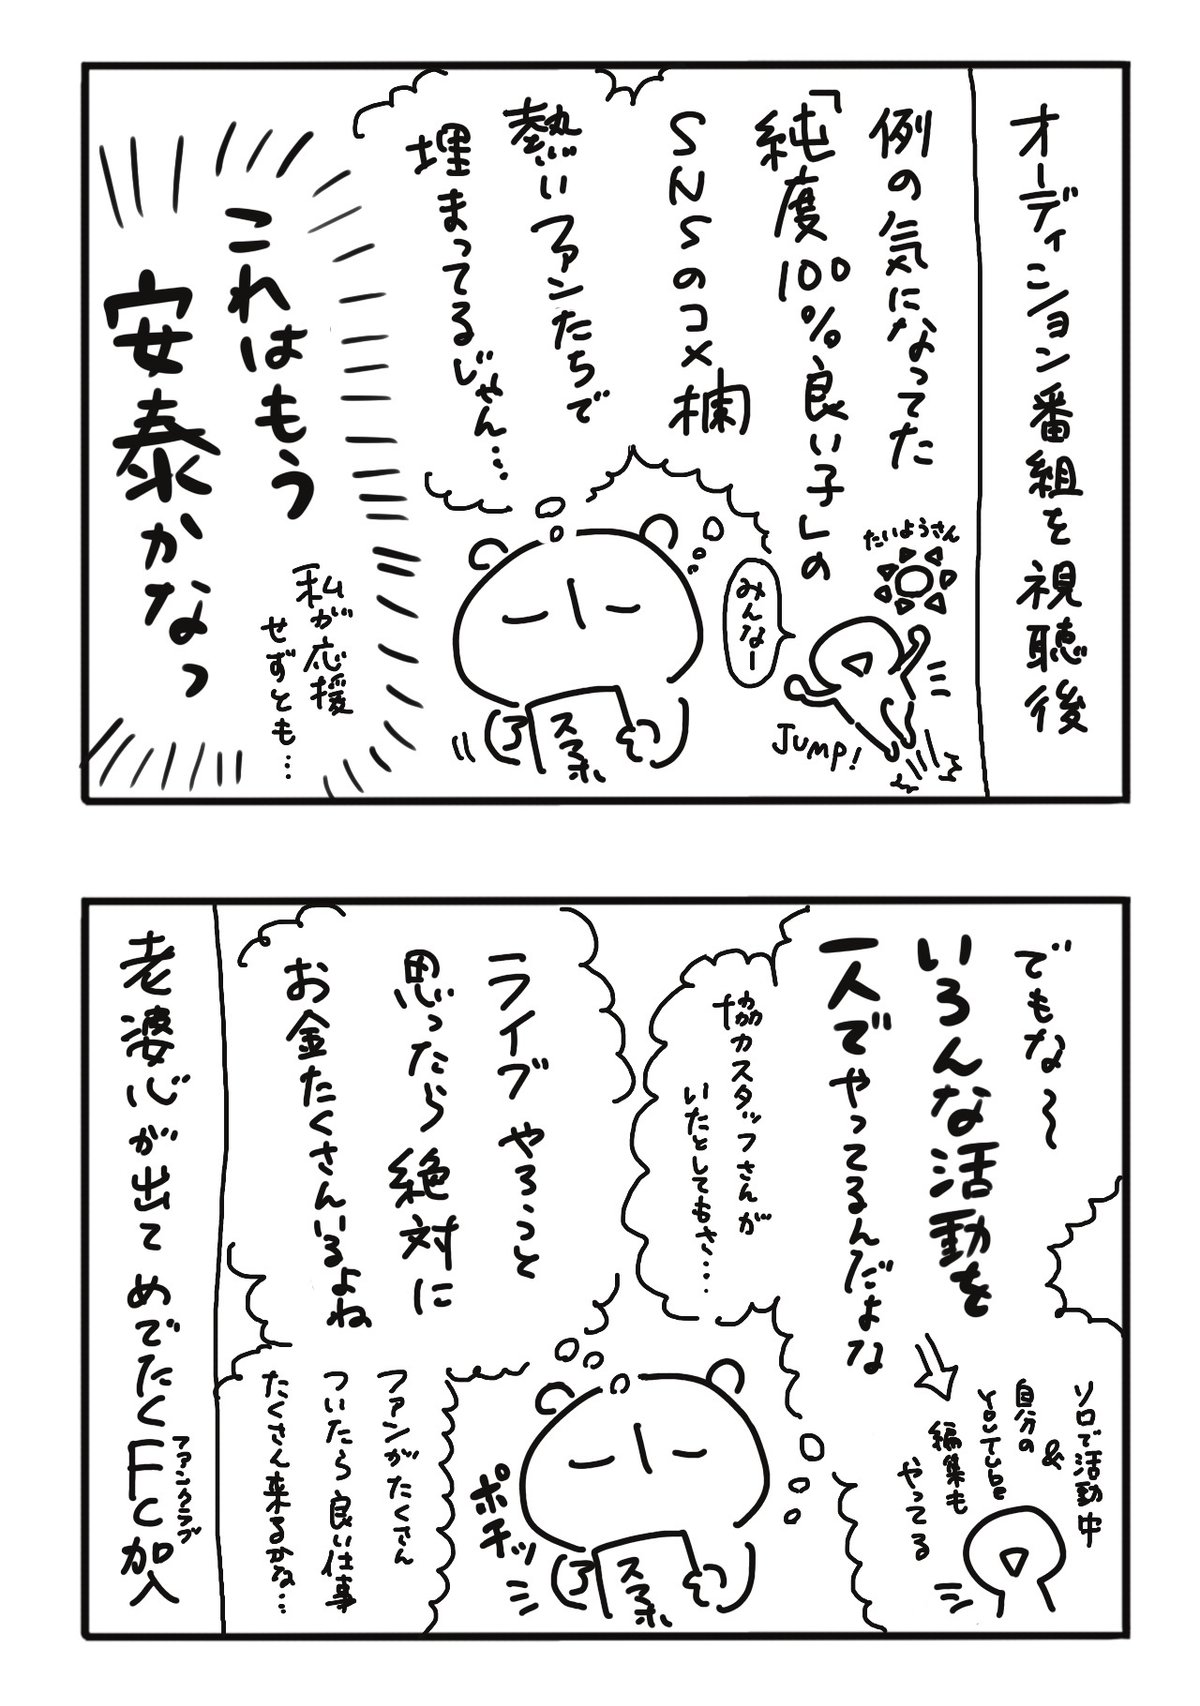 オーディション番組を視聴後
例の気になってた
「純度100%良い子」の
SNSのコメ欄
熱いファンたちで
埋まってるじゃん…
たいようさん
みんなー
JUMP!
スマホ
これはもう
安泰かなっ
私が応援
せずとも…
でもな〜
いろんな活動を
一人でやってるんだよな
ソロで活動中
&
自分の
YOUTUBE
編集も
やってる
協力スタッフさんが
いたとしてもさ…
ライブやろうと
思ったら絶対に
お金たくさんいるよね
ファンがたくさん
ついたら良い仕事
たくさん来るかな…
ポチッ
スマホ
老婆心が出てめでたくFC加入
ファンクラブ